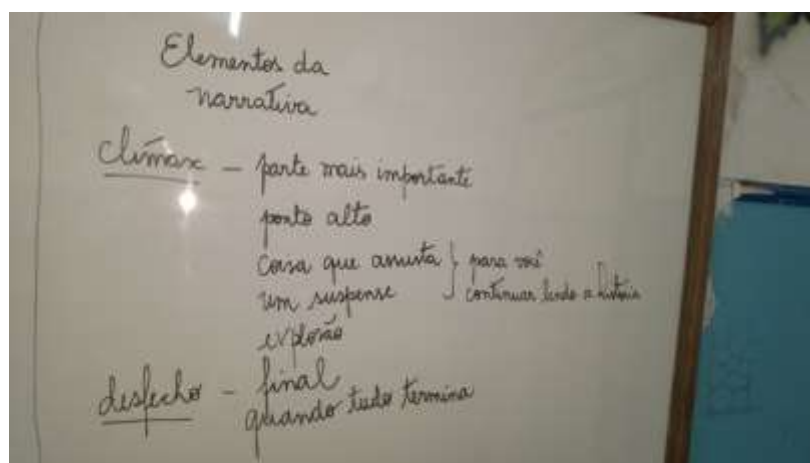 Elementos da
narrativa
clímax – parte mais importante
ponto alto
coisa que assusta } para você
um suspense } continuar lendo a história
explosão
desfecho – final
quando tudo termina